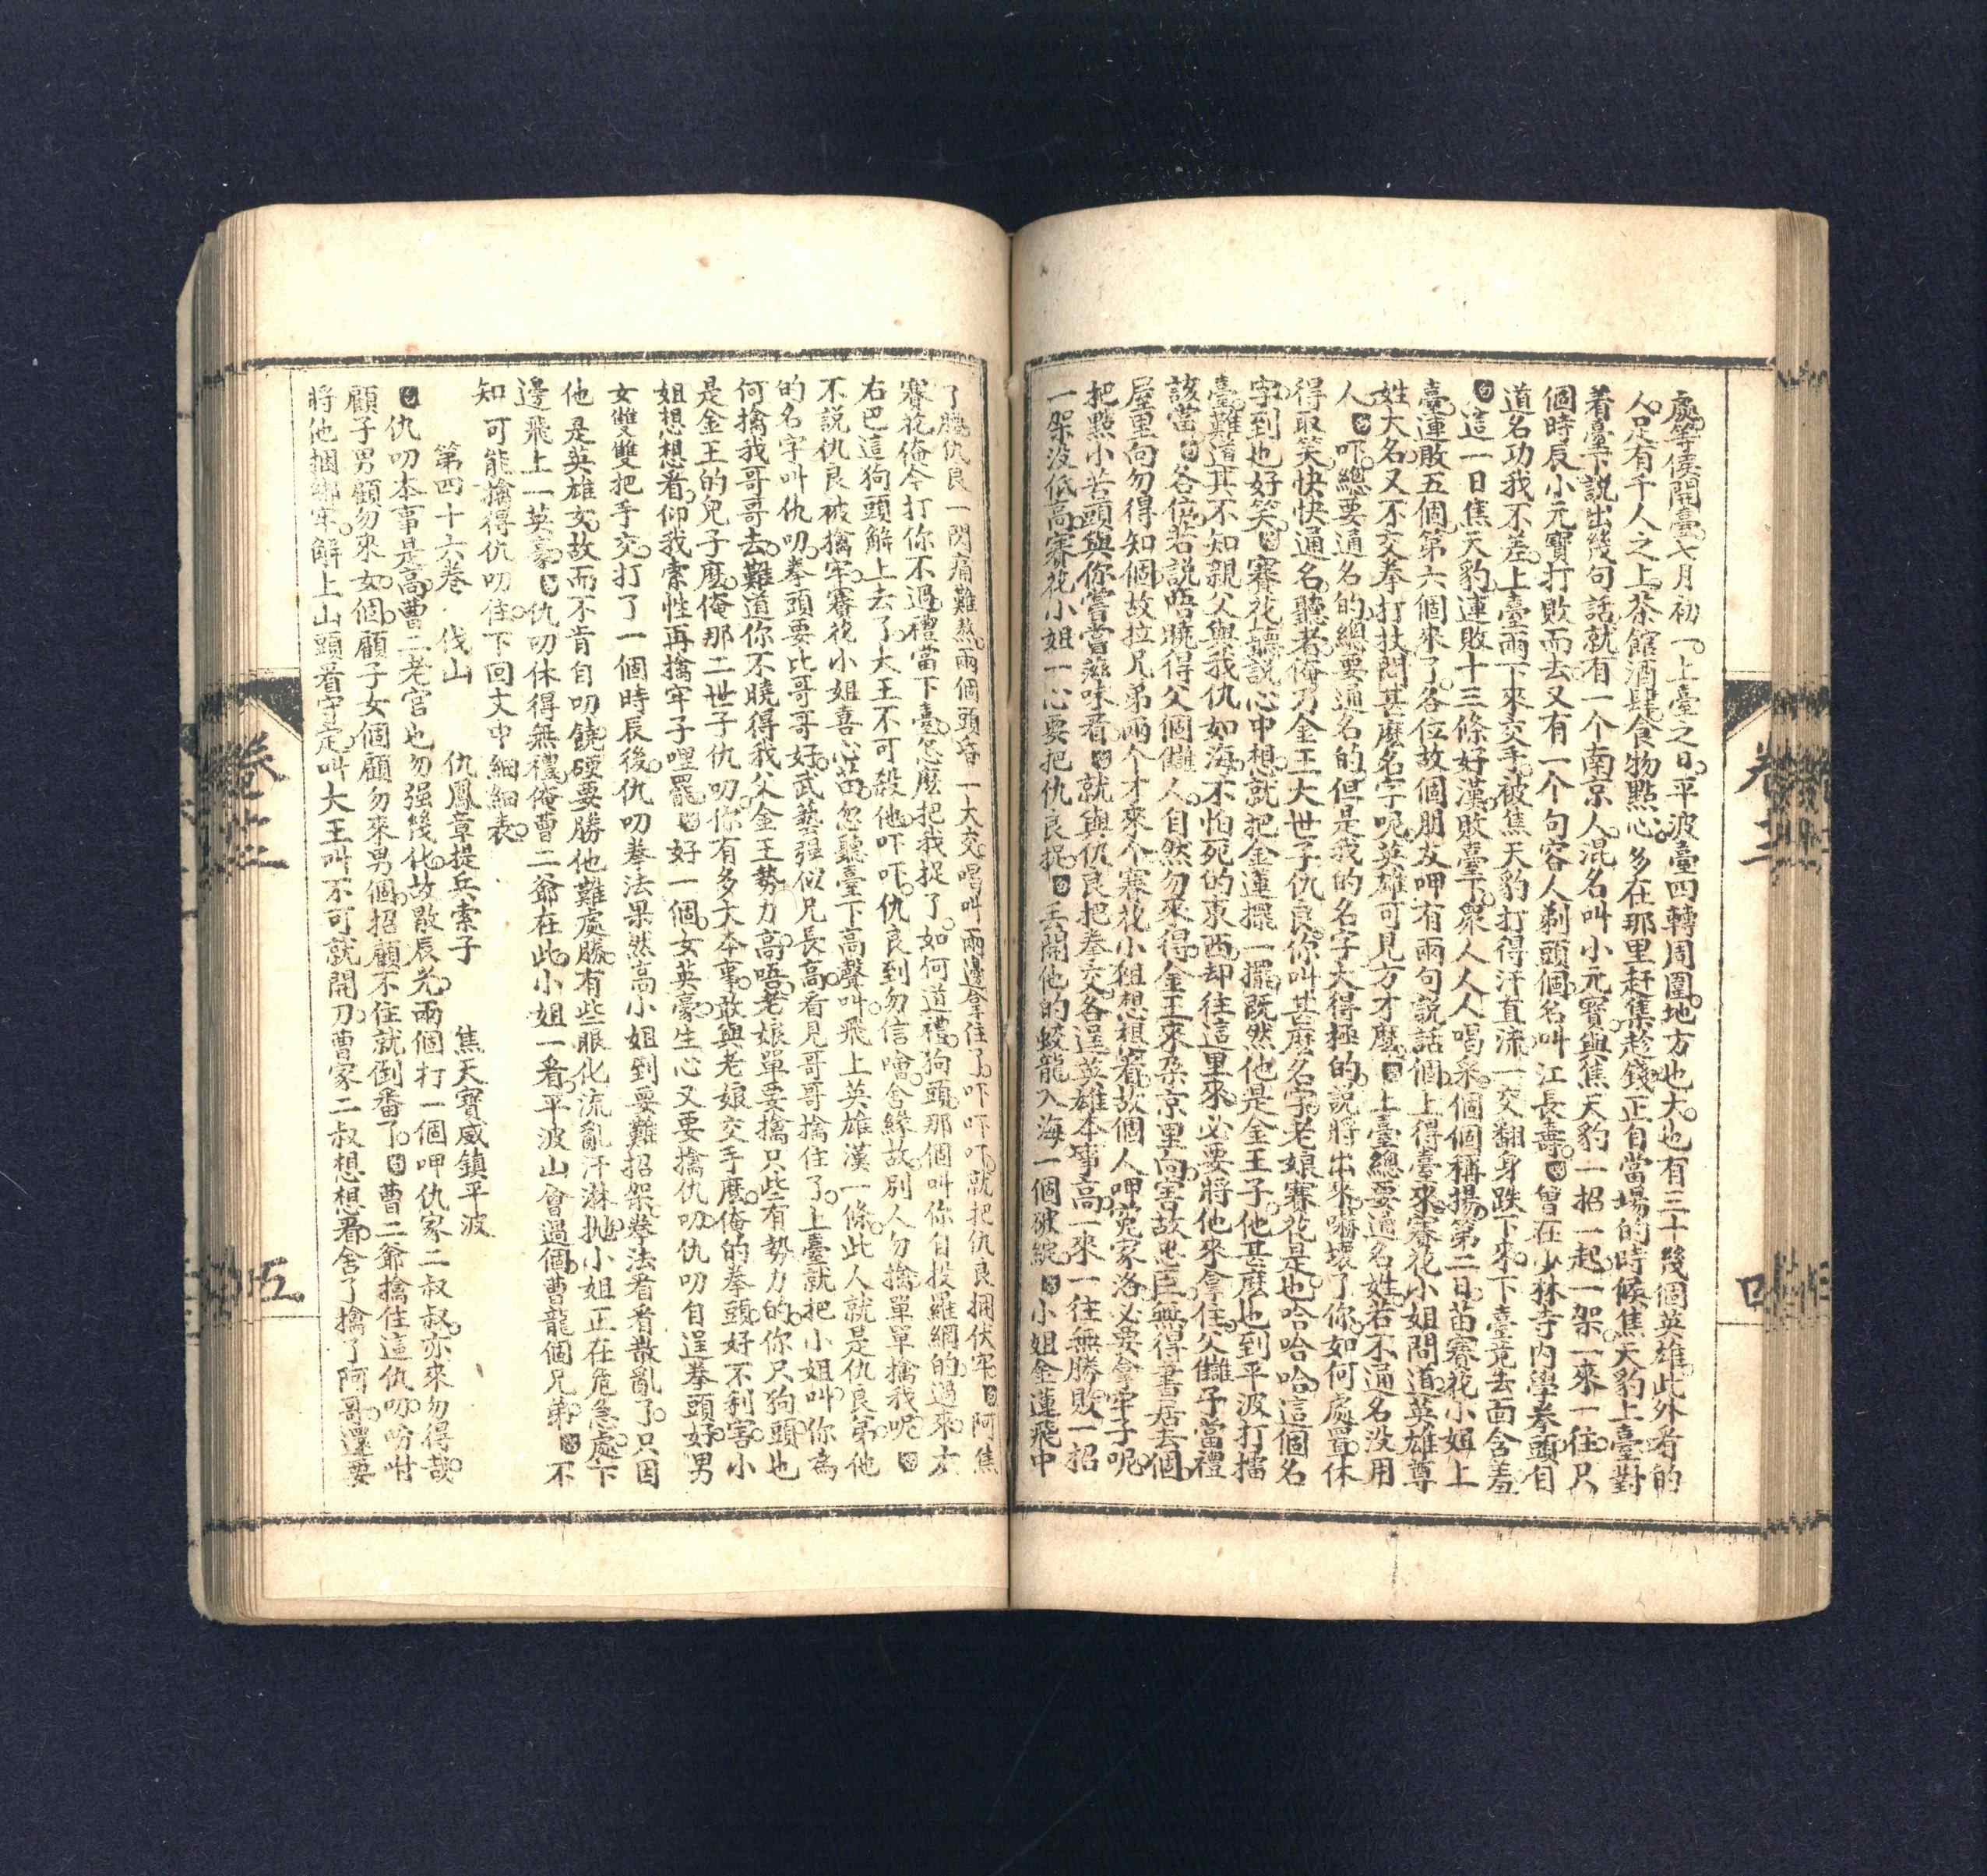 處。等候開臺。七月初一。上臺之日。平波臺四轉周圍。地方也大。也有三十幾個英雄。此外看的
人。足有千人之上。茶館酒肆。食物點心。多在那里赶集趁錢。正自當塲的時候。焦天豹上臺。對
着臺下。説出幾句話。就有一个南京人。混名叫小元寶。與焦天豹一招一起。一架一來一往。只
個時辰。小元寶打敗而去。又有一个句容人。剃頭個。名叫江長壽。曾在少林寺內學拳頭。自
道名功我不差。上臺兩下來交手。被焦天豹打得汗直流。一交翻身跌下來。下臺竟去面含羞。
這一日。焦天豹連敗十三條好漢。敗臺下。衆人人人唱采。個個稱揚。第二日。苗賽花小姐上
臺。連敗五個。第六個來了。各位。故個朋友呷有兩句説話個。上得臺來。賽花小姐問道。英雄尊
姓大名。又不交拳打扙。問甚麽名字呢。英雄可見方才麽。上臺總要通名姓。若不通名没用
人。吓。總要通名的。總要通名的。但是我的名字大得極的。説將出來。嚇壞了你。如何處置。休
得取笑。快快通名。聽者。俺乃金王大世子仇良。你叫甚麽名字。老娘賽花是也。哈哈哈。這個名
字到也好笑。賽花聽説心中想。就把金蓮擺一擺。既然他是金王子。他甚麽也到平波打擂
臺。難道其不知親父與我仇如海。不怕死的東西。却往這里來。必要將他來拿住。父讎子當禮
該當。各位。若説唔曉得父個讎人。自然勿來得。金王來朶京里向害故忠臣。無得書居去個。
屋里向勿得知個。故拉兄弟兩个才來个。寒花小姐想想看。故個人呷寃家洛。必要拿牢子呢。
把點小苦頭與你嘗嘗滋味看。就與仇良把拳交。各逞英雄本事高。一來一往無勝敗。一招
一架没低高。賽花小姐一心要把仇良捉。丢開他的蛟龍入海一個破綻。小姐金蓮飛中
了胸。仇良一閃痛難熬。兩個頭答一大交。唱叫兩邊拿住了。吓吓吓。就把仇良捆伏牢。阿焦
賽花。俺今打你不過。禮當下臺。怎麽把我捉了。如何道禮。狗頭。那個叫你自投羅網的。過來。左
右巴這狗頭解上去了。大王不可殺他。吓吓。仇良到勿信噲。舍緣故別人勿擒單單擒我呢。
不説仇良被擒牢。賽花小姐喜心苗。忽聽臺下高聲叫。飛上英雄漢一條。此人就是仇良弟。他
的名字叫仇叨。拳頭要比哥哥好。武藝强似兄長高。看見哥哥擒住了。上臺就把小姐叫。你爲
何擒我哥哥去。難道你不曉得我父金王勢力高。唔。老娘單要擒只些有勢力的。你只狗頭也
是金王的兒子麽。俺那二世子仇叨。你有多大本事。敢與老娘交手麽。俺的拳頭。好不利害。小
姐想想看。仰我索性再擒牢子哩罷。好一個女英豪。生心又要擒仇叨。仇叨自逞拳頭好。男
女雙雙把手交。打了一個時辰後。仇叨拳法果然高。小姐到要難招架。拳法看看散亂了。只因
他是英雄女。故而不肯自叨饒。硬要勝他難處勝。有些眼化流亂汗淋抛。小姐正在危急處。下
邊飛上一英豪。仇叨休得無禮。俺曹二爺在此。小姐一看。平波山會過個。曹龍個兄弟。不
知可能擒得仇叨住。下回丈中細細表。
第四十六卷　伐山　仇鳳章提兵索子　焦天寶威鎮平波
仇叨本事是高。曹二老官也勿强幾化。故散辰光。兩個打一個呷仇家二叔叔。亦來勿得哉。
顧子男顧勿來女個。顧子女個顧勿來男個。招顧不住就倒番了。曹二爺擒住這仇叨。吩咐
將他捆綁牢。解上山頭看守定。叫大王叫不可就開刀。曹家二叔想想看。舍了擒了阿哥。還要
卷三
卷三
四
五